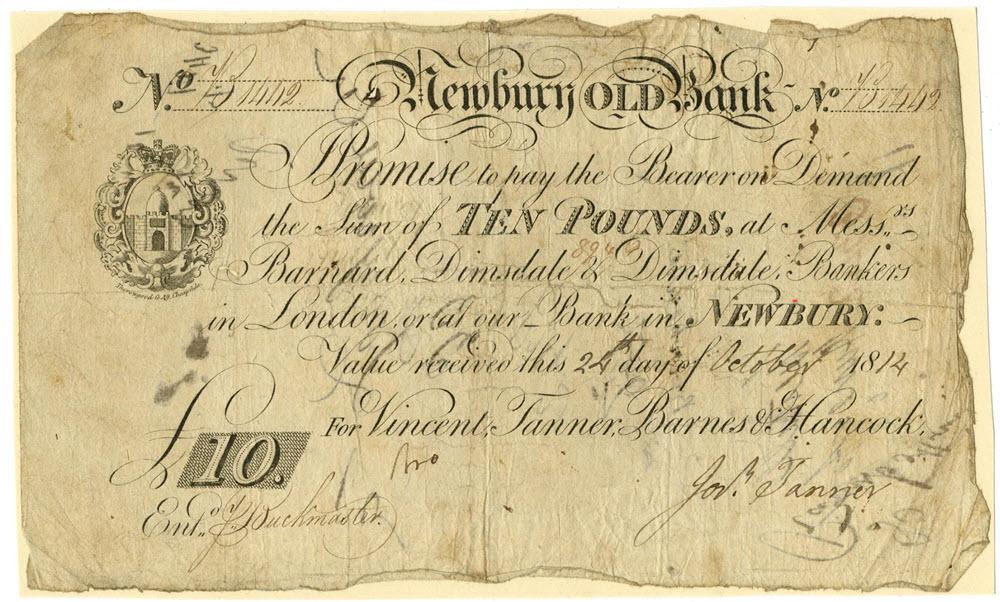 No. 1442 Newbury OLD Bank No. 1442
I Promise to pay the Bearer on Demand
the Sum of TEN POUNDS, at Messrs.
Barnard, Dimsdale & Dimsdale, Bankers
in London, or at our Bank in NEWBURY:
Value received this 24th day of October 1814
For Vincent, Tanner, Barnes & Hancock,
£10.
Josh. Tanner
Entd. J. Buckmaster.